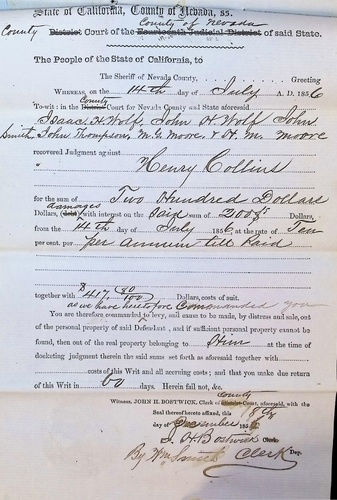 State of California, County of Nevada, ss.
County of Nevada
County District Court of the Fourteenth Judicial District of said State.
The People of the State of California, to
The Sheriff of Nevada County, Greeting
Whereas, on the 14th day of July A. D. 1856
To wit: in the County District Court for Nevada County and State aforesaid
Isaac H Wolf, John H Wolf John
Smith, John Thompson, M. G. Moore, & H. M. Moore
recovered Judgment against
Henry Collins
for the sum of Two Hundred Dollars
damages
Dollars, (debt) with interest on the said sum of 200$ Dollars,
from the 14th day of July 1856, at the rate of Ten
per cent. per per annum till Paid
together with $417, 80/100 Dollars, costs of suit.
as we have heretofore Commanded you
You are therefore commanded to levy, and cause to be made, by distress and sale, out
of the personal property of said Defendant, and if sufficient personal property cannot be
found, then out of the real property belonging to Him at the time of
docketing judgment therein the sum set forth as aforesaid together with
costs of this Writ and all accruing costs; and that you make due return
of this Writ in 60 days. Herein fail not, &c.
County
Witness, JOHN H. BOSTWICK, Clerk of District Court, aforesaid, with the
Seal thereof hereto affixed, this 8th
day of December 185
J. H Bostwick Clerk
By Wm Smith Clerk Dep.